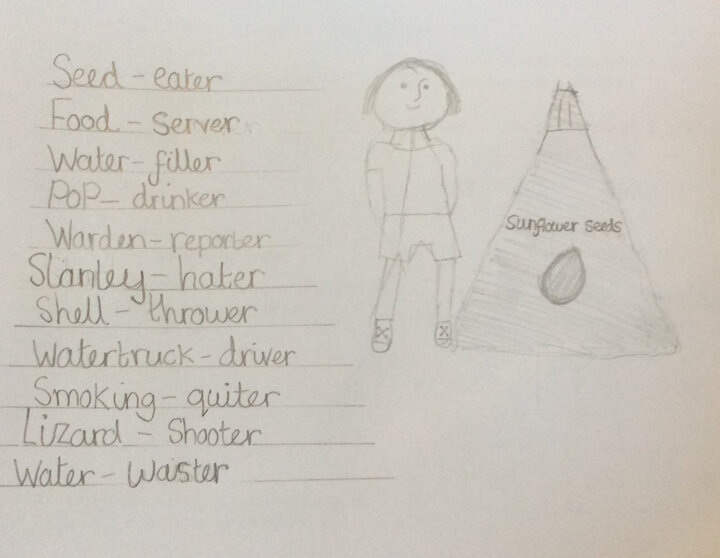 Seed - eater
Food - server
Water - filler
PoP - drinker
Warden - reporter
Stanley - hater
Shell - thrower
Watertruck - driver
Smoking - quiter
Lizard - Shooter
Water - Waster
Sunflower Seeds